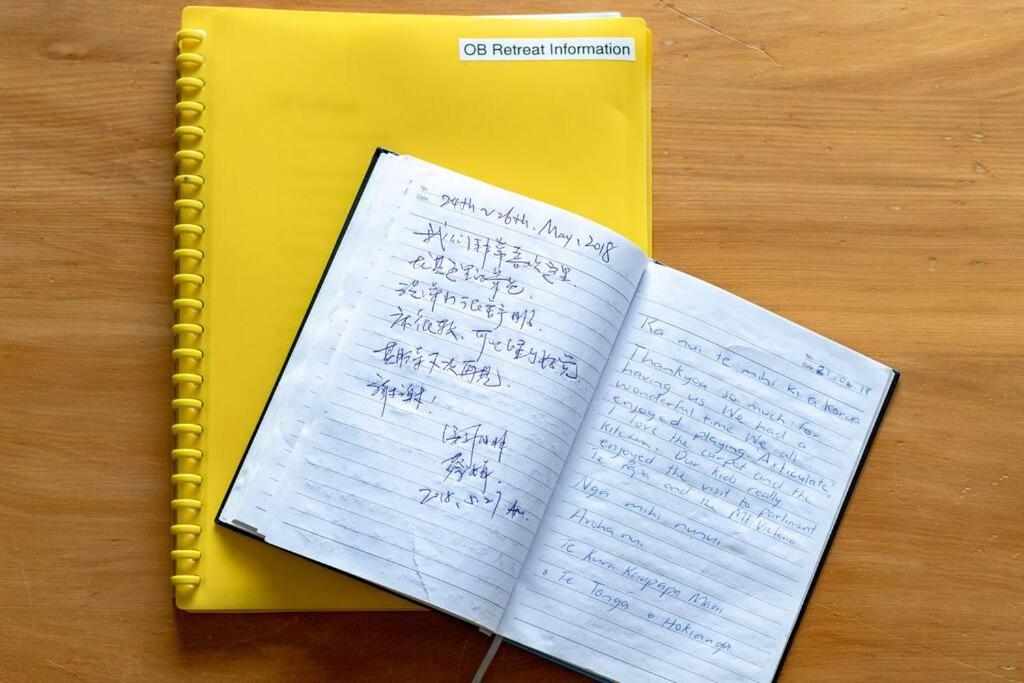 OB Retreat Information
No.
Date
24th ~ 26th. May, 2018
我们非常喜欢这里.
尤其这里的景色.
床很软、
谢谢!
2018.5.27
No.
Date 21.06.18
Ka nui te mihi ki a korua
Thankyou so much for
having us. We had a
wonderful time. We all
enjoyed playing 'Articulate'
I love the carpet and the
kitchen. Our kids really
enjoyed the visit to parliment
Te Papa and the Mt Victoria
Nga mihi nunui
Aroha nui
Te Kura Kaupapa Maori
o Te Tonga o Hokianga.